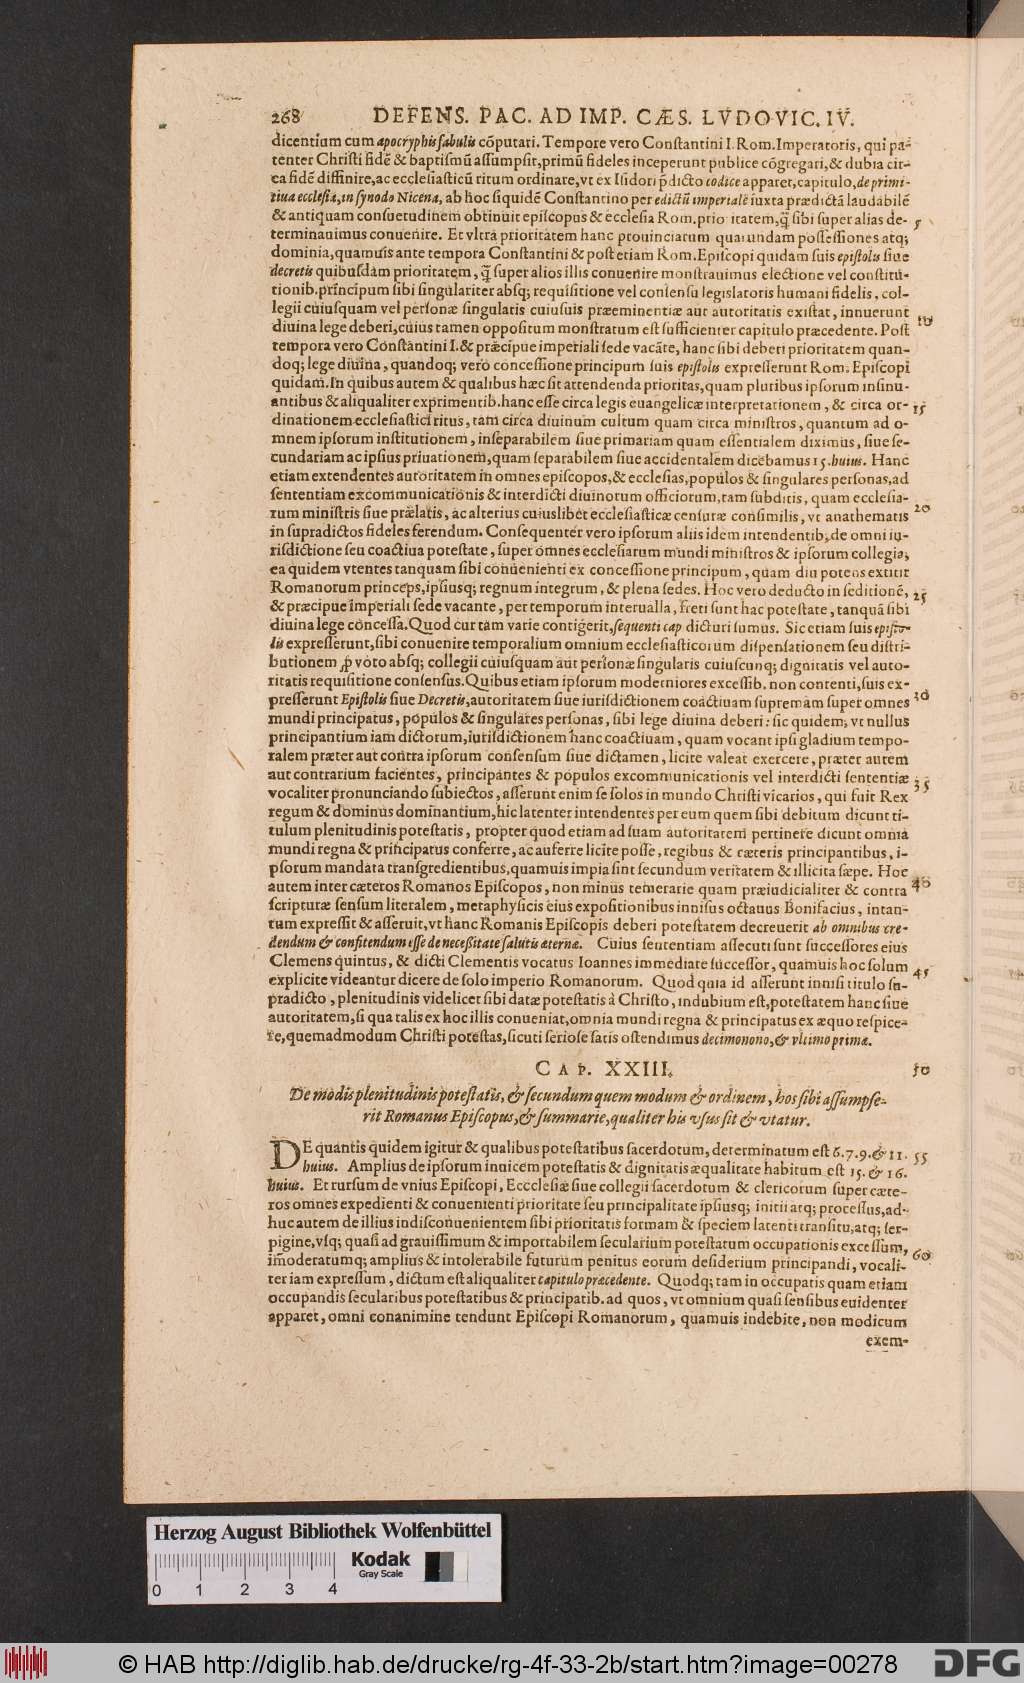 268 DEFENS. PAC. AD IMP. CÆS. LVDOVIC. IV.
dicentium cum apocryphis fabulis cõputari. Tempore vero Constantini I. Rom. Imperatoris, qui pa-
tenter Christi fidẽ & baptismũ assumpsit, primũ fideles inceperunt publice cõgregari, & dubia cir-
ca fidẽ diffinire, ac ecclesiasticũ ritum ordinare, vt ex Isidori p̃dicto codice apparet, capitulo, de primi-
tiua ecclesia, in synodo Nicena, ab hoc siquidẽ Constantino per edictũ imperialẽ iuxta prædictã laudabilẽ
& antiquam consuetudinem obtinuit episcopus & ecclesia Rom. prioritatem, q̃ sibi super alias de- 5
terminauimus conuenire. Et vltra prioritatem hanc prouinciarum quarundam possessiones atq;
dominia, quamuis ante tempora Constantini & post etiam Rom. Episcopi quidam suis epistolis siue
decretis quibusdam prioritatem, q̃ super alios illis conuenire monstrauimus electione vel constitu-
tionib. principum sibi singulariter absq; requisitione vel consensu legislatoris humani fidelis, col-
legii cuiusquam vel personæ singularis cuiusuis præeminentiæ aut autoritatis existat, innuerunt 10
diuina lege deberi, cuius tamen oppositum monstratum est sufficienter capitulo præcedente. Post
tempora vero Constantini I. & præcipue imperiali sede vacãte, hanc sibi deberi prioritatem quan-
doq; lege diuina, quandoq; vero concessione principum suis epistolis expresserunt Rom. Episcopi
quidam. In quibus autem & qualibus hæc sit attendenda prioritas, quam pluribus ipsorum insinu-
antibus & aliqualiter exprimentib. hanc esse circa legis euangelicæ interpretationem, & circa or- 15
dinationem ecclesiastici ritus, tam circa diuinum cultum quam circa ministros, quantum ad o-
mnem ipsorum institutionem, inseparabilem siue primariam quam essentialem diximus, siue se-
cundariam ac ipsius priuationem, quam separabilem siue accidentalem dicebamus 15. huius. Hanc
etiam extendentes autoritatem in omnes episcopos, & ecclesias, populos & singulares personas, ad
sententiam excommunicationis & interdicti diuinotum officiorum, tam subditis, quam ecclesia-
rum ministris siue prælatis, ac alterius cuiuslibet ecclesiasticæ censuræ consimilis, vt anathematis 20
in supradictos fideles ferendum. Consequenter vero ipsorum aliis idem intendentib. de omni iu-
risdictione seu coactiua potestate, super omnes ecclesiarum mundi ministros & ipsorum collegia,
ea quidem vtentes tanquam sibi conuenienti ex concessione principum, quam diu potens extitit
Romanorum princeps, ipsiusq; regnum integrum, & plena sedes. Hoc vero deducto in seditionẽ,
& præcipue Imperiali sede vacante, per temporum interualla, freti sunt hac potestate, tanquã sibi 25
diuina lege concessa. Quod cur tam varie contigerit, sequenti cap dicturi sumus. Sic etiam suis episto-
lis expresserunt, sibi conuenire temporalium omnium ecclesiasticorum dispensationem seu distri-
butionem ꝓ voto absq; collegii cuiusquam aut personæ singularis cuiuscunq; dignitatis vel auto-
ritatis requisitione consensus. Quibus etiam ipsorum moderniores excessib. non contenti, suis ex-
presserunt Epistolis siue Decretis, autoritatem siue iurisdictionem coactiuam supremam super omnes 30
mundi principatus, populos & singulares personas, sibi lege diuina deberi: sic quidem, vt nullus
principantium iam dictorum, iurisdictionem hanc coactiuam, quam vocant ipsi gladium tempo-
ralem præter aut contra ipsorum consensum siue dictamen, licite valeat exercere, præter autem
aut contrarium facientes, principantes & populos excommunicationis vel interdicti sententiæ
vocaliter pronunciando subiectos, asserunt enim se solos in mundo Christi vicarios, qui fuit Rex 35
regum & dominus dominantium, hic latenter intendentes per eum quem sibi debitum dicunt ti-
tulum plenitudinis potestatis, propter quod etiam ad suam autoritatem pertinere dicunt omnia
mundi regna & principatus conferre, ac auferre licite posse, regibus & cæteris principantibus, i-
psorum mandata transgredientibus, quamuis impia sint secundum veritatem & illicita sæpe. Hoc
autem inter cæteros Romanos Episcopos, non minus temerarie quam præiudicialiter & contra 40
scripturæ sensum literalem, metaphysicis eius expositionibus innisus octauus Bonifacius, intan-
tum expressit & asseruit, vt hanc Romanis Episcopis deberi potestatem decreuerit ab omnibus cre-
dendum & confitendum esse de necessitate salutis æternæ. Cuius sententiam assecuti sunt successores eius
Clemens quintus, & dicti Clementis vocatus Ioannes immediate successor, quamuis hoc solum
explicite videantur dicere de solo imperio Romanorum. Quod quia id asserunt innisi titulo su- 45
pradicto, plenitudinis videlicet sibi datæ potestatis à Christo, indubium est, potestatem hanc siue
autoritatem, si qua talis ex hoc illis conueniat, omnia mundi regna & principatus ex æquo respice-
re, quemadmodum Christi potestas, sicuti seriose satis ostendimus decimonono, & vltimo primæ.
CAP. XXIII. 50
De modis plenitudinis potestatis, & secundum quem modum & ordinem, hos sibi assumpse-
rit Romanus Episcopus, & summarie, qualiter his vsus sit & vtatur.
DE quantis quidem igitur & qualibus potestatibus sacerdotum, determinatum est 6. 7. 9. & 11. 55
huius. Amplius de ipsorum inuicem potestatis & dignitatis æqualitate habitum est 15. & 16.
huius. Et rursum de vnius Episcopi, Eccclesiæ siue collegii sacerdotum & clericorum super cæte-
ros omnes expedienti & conuenienti prioritate seu principalitate ipsiusq; initii atq; processus, ad-
huc autem de illius indisconuenientem sibi prioritatis formam & speciem latenti transitu, atq; ser-
pigine, vsq; quasi ad grauissimum & importabilem secularium potestatum occupationis excessum, 60
im̃oderatumq; amplius & intolerabile futurum penitus eorum desiderium principandi, vocali-
ter iam expressum, dictum est aliqualiter capitulo præcedente. Quodq; tam in occupatis quam etiam
occupandis secularibus potestatibus & principatib. ad quos, vt omnium quasi sensibus euidenter
apparet, omni conanimine tendunt Episcopi Romanorum, quamuis indebite, non modicum
exem-
Herzog August Bibliothek Wolfenbüttel
Kodak
Gray Scale
0 1 2 3 4
© HAB http://diglib.hab.de/drucke/rg-4f-33-2b/start.htm?image=00278
DFG